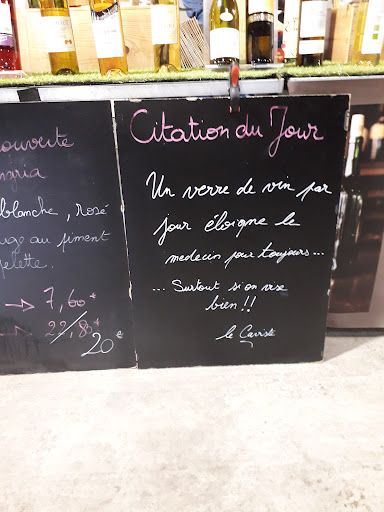 ouverte
gria
blanche, rosé
uge au piment
pelette.
→ 7,60€
→ 22,80€
20€
Citation du Jour
Un verre de vin par
jour éloigne le
medecin pour toujours...
... Surtout si on vise
bien!!
le Caviste